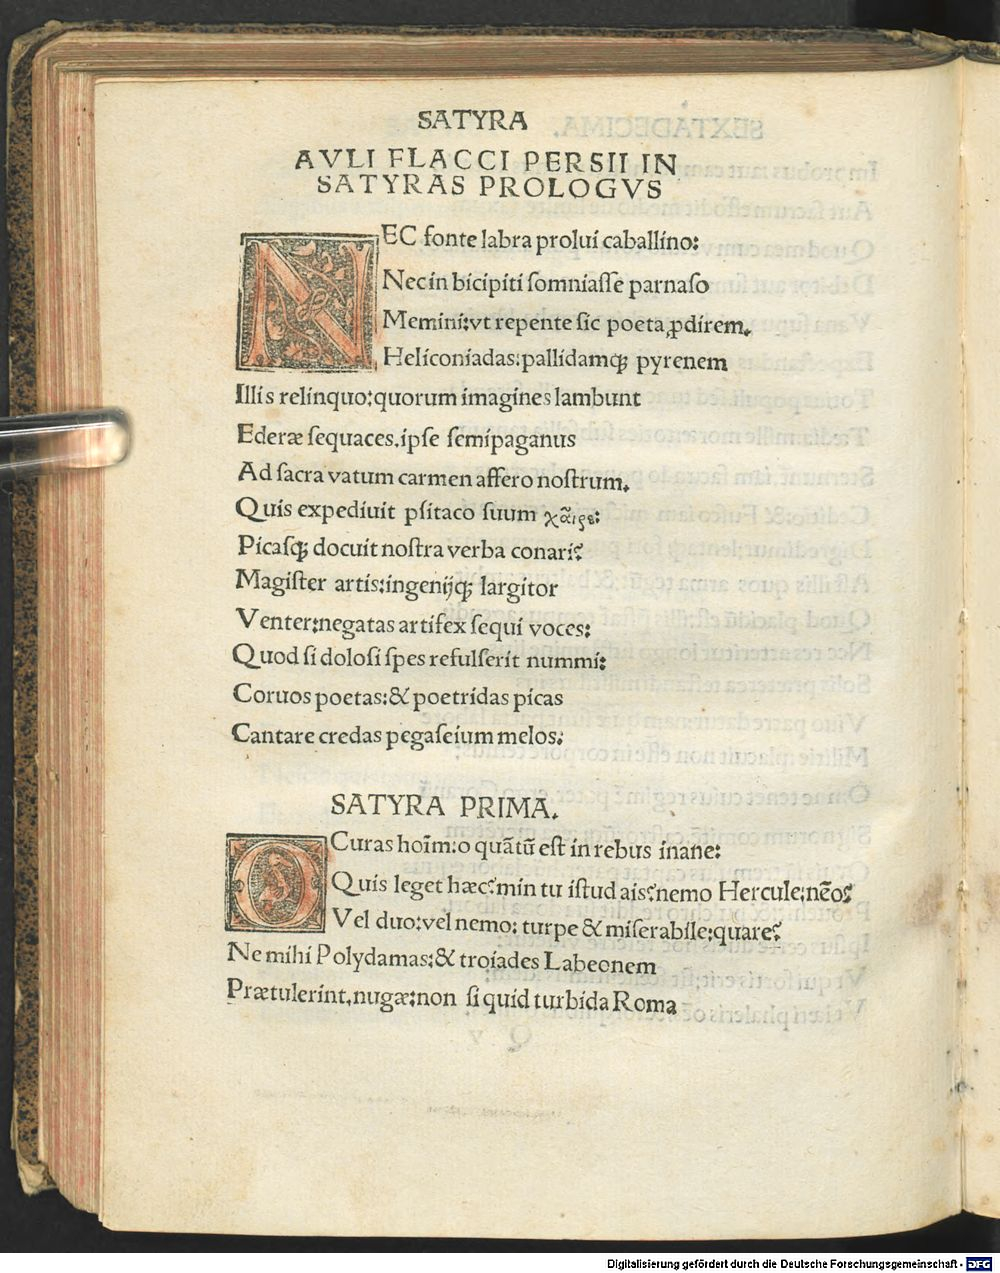 SATYRA
AVLI FLACCI PERSII IN
SATYRAS PROLOGVS
NEC fonte labra prolui caballino:
Nec in bicipiti ſomniaſſe parnaſo
Memini:vt repente ſic poeta ꝓdirem.
Heliconiadas:pallidamqꝫ pyrenem
Illis relinquo:quorum imagines lambunt
Ederæ ſequaces.ipſe ſemipaganus
Ad ſacra vatum carmen affero noſtrum.
Quis expediuit pſitaco ſuum χαῖρε:
Picaſqꝫ docuit noſtra verba conari?
Magiſter artis:ingenijqꝫ largitor
Venter:negatas artifex ſequi voces:
Quod ſi doloſi ſpes refulſerit nummi:
Coruos poetas:& poetridas picas
Cantare credas pegaſeium melos:
SATYRA PRIMA.
O Curas hoīm:o quātū eſt in rebus inane:
Quis leget hæc?min tu iſtud ais?nemo Hercule:nēo?
Vel duo:vel nemo: turpe & miſerabile:quare?
Ne mihi Polydamas:& troiades Labeonem
Prætulerint.nugæ:non ſi quid turbida Roma
Digitalisierung gefördert durch die Deutsche Forschungsgemeinschaft - DFG